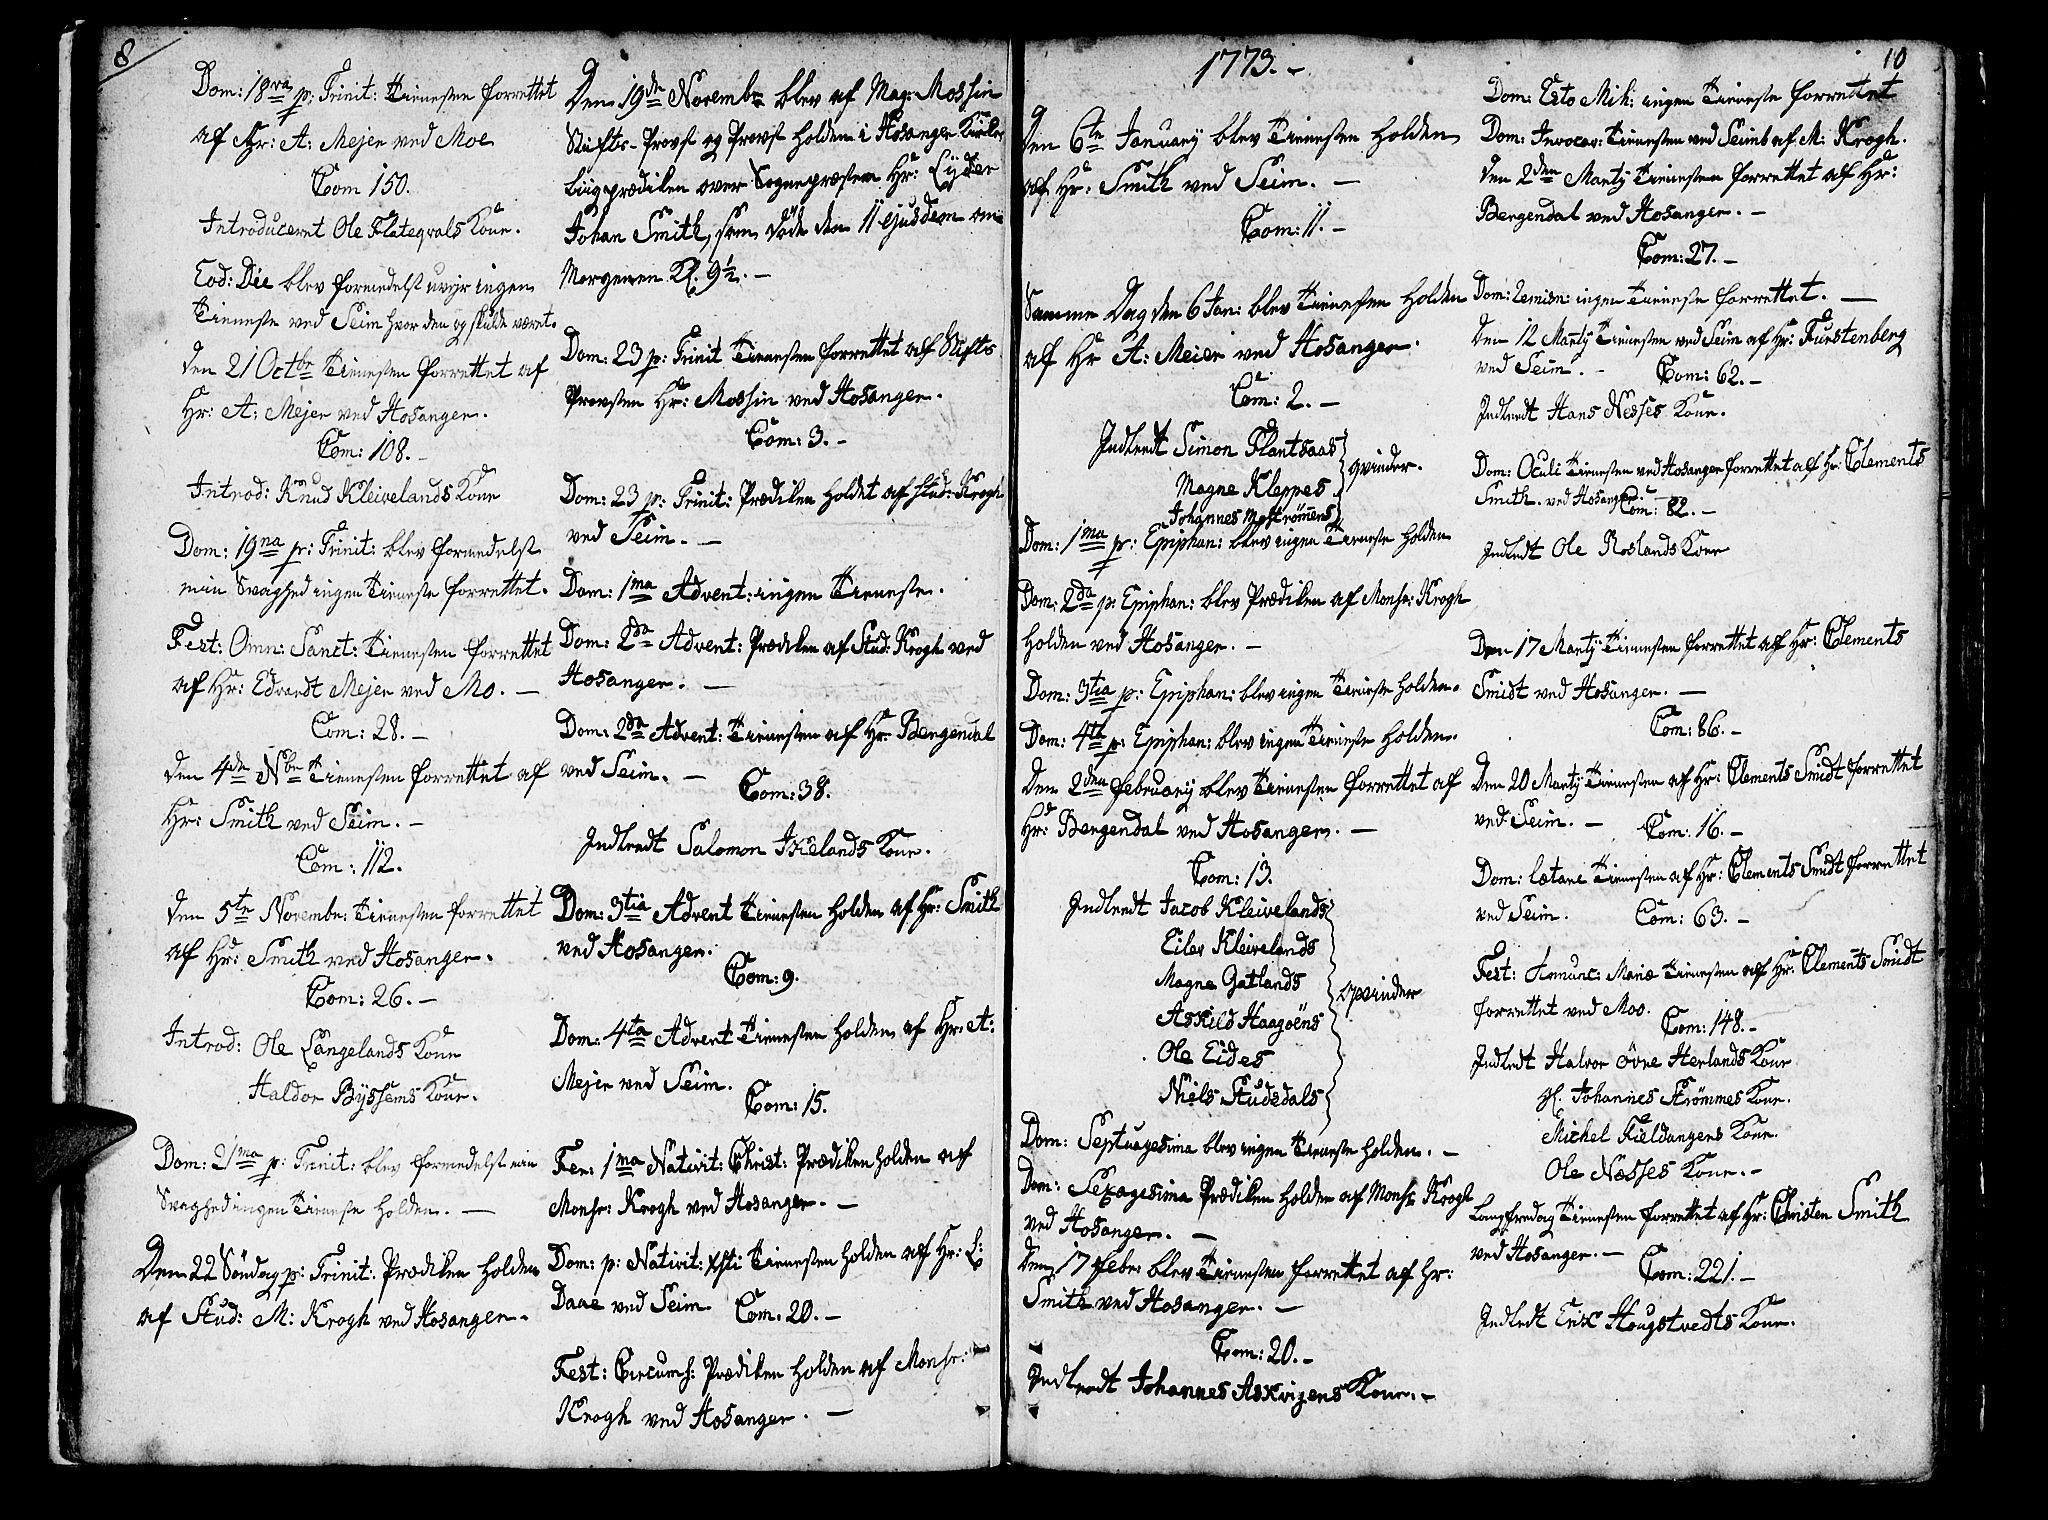 8
Dom: 18va p: Trinit: Tienesten forrettet
af Hr: A: Mejer ved Moe
Com 150.
Introduceret Ole Flateqvals Kone.
Eod: Die blev formedelst uvejr ingen
Tieneste ved Seim hvor den og skulde været.
Den 21 Octbr Tienesten forrettet af
Hr: A: Mejer ved Hosanger.
Com: 108.
Introd: Knud Kleivelands Kone
Dom: 19na p: Trinit: blev formedelst
min Svaghed ingen Tieneste forrettet.
Fest: Omn: Sanct: Tienesten forrettet
af Hr: Edvardt Mejer ved Mo. –
Com: 28. –
Den 4de Nbr Tienesten forrettet af
Hr: Smith ved Seim. –
Com: 112.
Den 5te Novembr: Tienesten forrettet
af Hr: Smith ved Hosanger.
Com: 26. –
Introd: Ole Langelands Kone
Haldor Byssems Kone.
Dom: 21ma p: Trinit: blev formedelst min
Svaghed ingen Tieneste holden. –
Den 22 Söndag p: Trinit: Prædiken holden
af Stud: M: Krogh ved Hosanger.
Den 19de Novembr blev af Mag: Mossin
Stifts-Provst og Provst holden i Hosanger Kirke
Liigprædiken over Sognepræsten Hr: Eyder
Johan Smith, som döde den 11 ejusdem om
Morgenen Kl. 9½. –
Dom: 23 p: Trinit Tienesten forrettet af Stifts
Provsten Hr: Mossin ved Hosanger.
Com: 3. –
Dom: 23 p: Trinit: Prædiken holdet af Stud: Krogh
ved Seim. –
Dom: 1ma Advent: ingen Tieneste.
Dom: 2da Advent: Prædiken af Stud: Krogh ved
Hosanger. –
Dom: 2da Advent: Tienesten af Hr: Bergendal
ved Seim. –
Com: 38.
Indledt Salomon Ikelands Kone.
Dom: 3tia Advent Tienesten holden af Hr: Smith
ved Hosanger.
Com: 9.
Dom: 4ta Advent Tienesten holden af Hr: A:
Mejer ved Seim.
Com: 15.
Fer: 1ma Nativit: Christ: Prædiken holden af
Monsr: Krogh ved Hosanger. –
Dom: p: Nativit: Xsti Tienesten holden af Hr: L:
Daae ved Seim Com: 20. –
Fest: Circums: Prædiken holden af Monsr:
Krogh ved Hosanger. –
1773. –
Den 6te January blev Tienesten holden
af Hr: Smith ved Seim. –
Com: 11. –
Samme Dag den 6 Jan: blev Tienesten holden
af Hr A: Meier ved Hosanger.
Com: 2. –
Indledt Simon Flantsaas
Magne Kleppes qvinder.
Johannes Moströmens
Dom: 1ma p: Epiphan: blev ingen Tieneste holden
Dom: 2da p: Epiphan: blev Prædiken af Monsr: Krogh
holden ved Hosanger. –
Dom: 3tia p: Epiphan: blev ingen Tieneste holden.
Dom: 4ta p: Epiphan: blev ingen Tieneste holden.
Den 2den february blev Tienesten forrettet af
Hr: Bergendal ved Hosanger. –
Com: 13.
Indledt Jacob Kleivelands
Eiler Kleivelands
Magne Gatlands
Askild Haagöens qvinder
Ole Eides
Niels Studsdals
Dom: Septuagesima blev ingen Tieneste holden. –
Dom: Sexagesima Prædiken holden af Monsr Krogh
ved Hosanger. –
Den 17 febr: blev Tienesten forrettet af Hr:
Smith ved Hosanger. –
Com: 20. –
Indledt Johannes Askvigens Kone. –
10
Dom: Esto Mih: ingen Tieneste forrettet
Dom: Invocav: Tienesten ved Seimb af M: Krogh.
Den 2den Martij Tienesten forrettet af Hr:
Bergendal ved Hosanger. –
Com: 27. –
Dom: Remisn: ingen Tieneste forrettet. –
Den 12 Martij Tienesten ved Seim af Hr: Furstenberg
ved Seim. – Com: 62. –
Indledt Hans Nesses Kone.
Dom: Oculi Tienesten ved Hosanger forrettet af Hr: Clements
Smith. ved Hosanger. Com: 82. –
Indledt Ole Roslands Kone
Den 17 Martij Tienesten forrettet af Hr: Clements
Smidt ved Hosanger. –
Com: 86. –
Den 20 Martij Tienesten af Hr: Clements Smidt forrettet
ved Seim. – Com: 16. –
Dom: Lætare Tienesten af Hr: Clements Smidt forrettet
ved Seim. Com: 63. –
Fest: Annunc: Mariæ Tienesten af Hr: Clements Smidt
forrettet ved Moo. Com: 148. –
Indledt Halvor övre Herlands Kone
Johannes Strömmes Kone.
Michel Kieldangens Kone.
Ole Næsses Kone. –
Langfredag Tienesten forrettet af Hr: Christen Smith
ved Hosanger. – Com: 221. –
Indledt Erix Hougstvedts Kone.